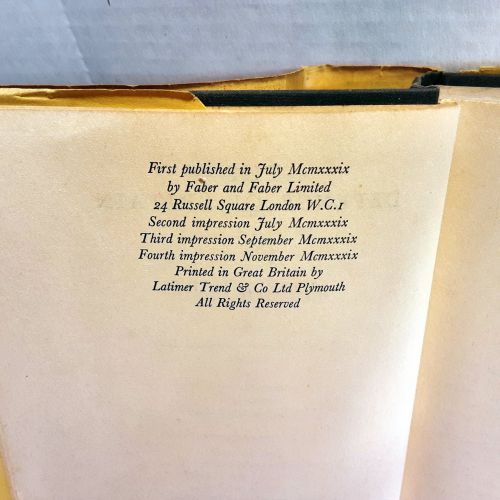 First published in July Mcmxxxix
by Faber and Faber Limited
24 Russell Square London W.C.1
Second impression July Mcmxxxix
Third impression September Mcmxxxix
Fourth impression November Mcmxxxix
Printed in Great Britain by
Latimer Trend & Co Ltd Plymouth
All Rights Reserved